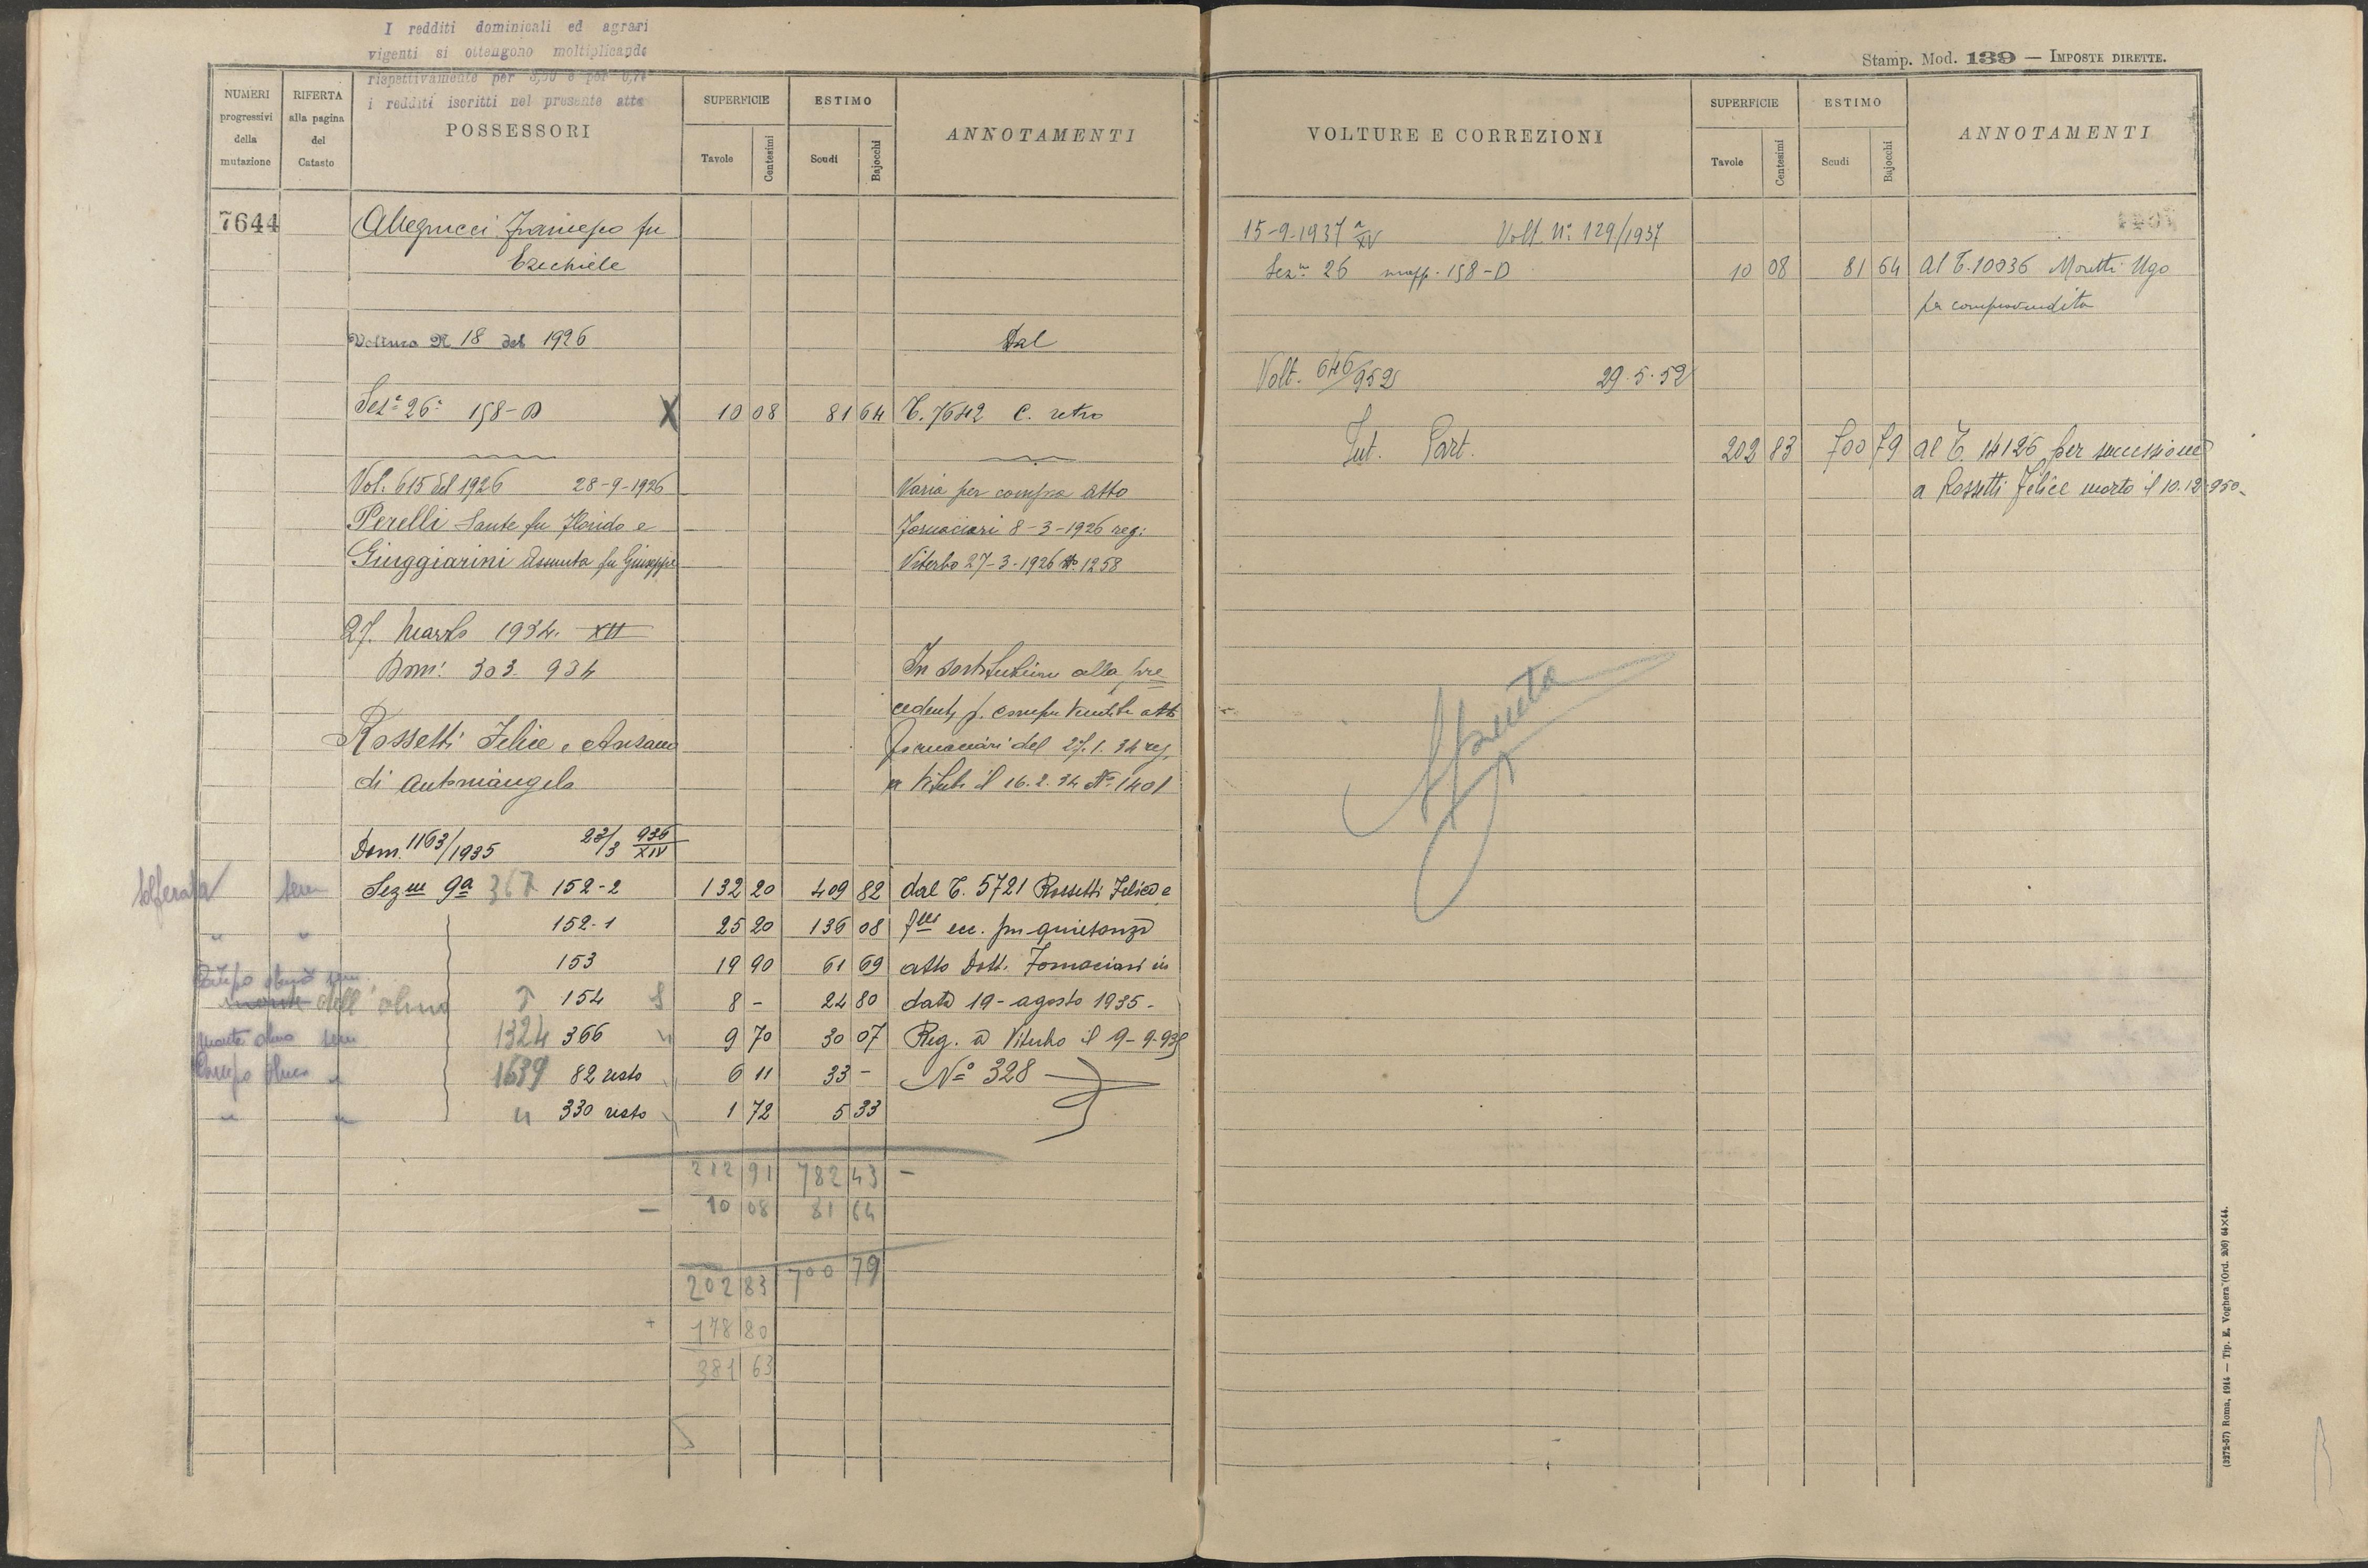 I redditi dominicali ed agrari
vigenti si ottengono moltiplicando
rispettivamente per
i redditi iscritti nel presente atto
Stamp. Mod. 139 — IMPOSTE DIRETTE.
NUMERI progressivi della mutazione
RIFERTA alla pagina del Catasto
POSSESSORI
SUPERFICIE
Tavole
Centesimi
ESTIMO
Scudi
Bajocchi
ANNOTAMENTI
7644 Allegrucci Francesco fu
Ezechiele
Voltura N 18 del 1926 Dal
Sez.e 26.a 158-D X 10 08 81 64 T. 7642 C. retro
Vol. 615 del 1926 28-9-1926 Varia per compra atto
Perelli Sante fu Florido e Fornaciari 8-3-1926 reg:
Giurggiarini Assunta fu Giuseppe Viterbo 27-3-1926 N. 1258
27. Marzo 1934. XII
Dom: 303. 934 In sostituzione alla pre
cedente p. compra vendita atto
Rossetti Felice e Fornaciari del 27.1.34 reg.
di Antoniangelo a Viterbo il 16.2.34 No 1401
Dom. 1163/1935 23/3 936 XIV
Solferata sem Sezne 9a 367 152-2 132 20 409 82 dal T. 5721 Rossetti Felice e
" " 152-1 25 20 136 08 flli ecc. per quietanza
153 19 90 61 69 atto Dott. Fornaciari in
Campo olmo sem
monte dell'olmo 154 8 - 24 80 data 19-agosto 1935-
monte olmo sem 1324 366 " 9 70 30 07 Reg. a Viterbo il 9-9-935
Campo olmo " 1639 82 resto " 6 11 33 - No 328
" " " 330 resto 1 72 5 33
212 91 782 43 -
- 10 08 81 64
202 83 700 79
+ 178 80
381 63
VOLTURE E CORREZIONI
SUPERFICIE
Tavole
Centesimi
ESTIMO
Scudi
Bajocchi
ANNOTAMENTI
7644
15-9-1937 a XV Volt. No 129/1937
Sezne 26 mapp. 158-D 10 08 81 64 Al T. 10036 Moretti Ugo
per compravendita
Volt. 646/952 29.5.52
Int. Part. 202 83 700 79 al T. 14126 per successione
a Rossetti Felice morto il 10.12.950-
Spenta
(3272-57) Roma, 1914 — Tip. E. Voghera (Ord. 206) 64×44.